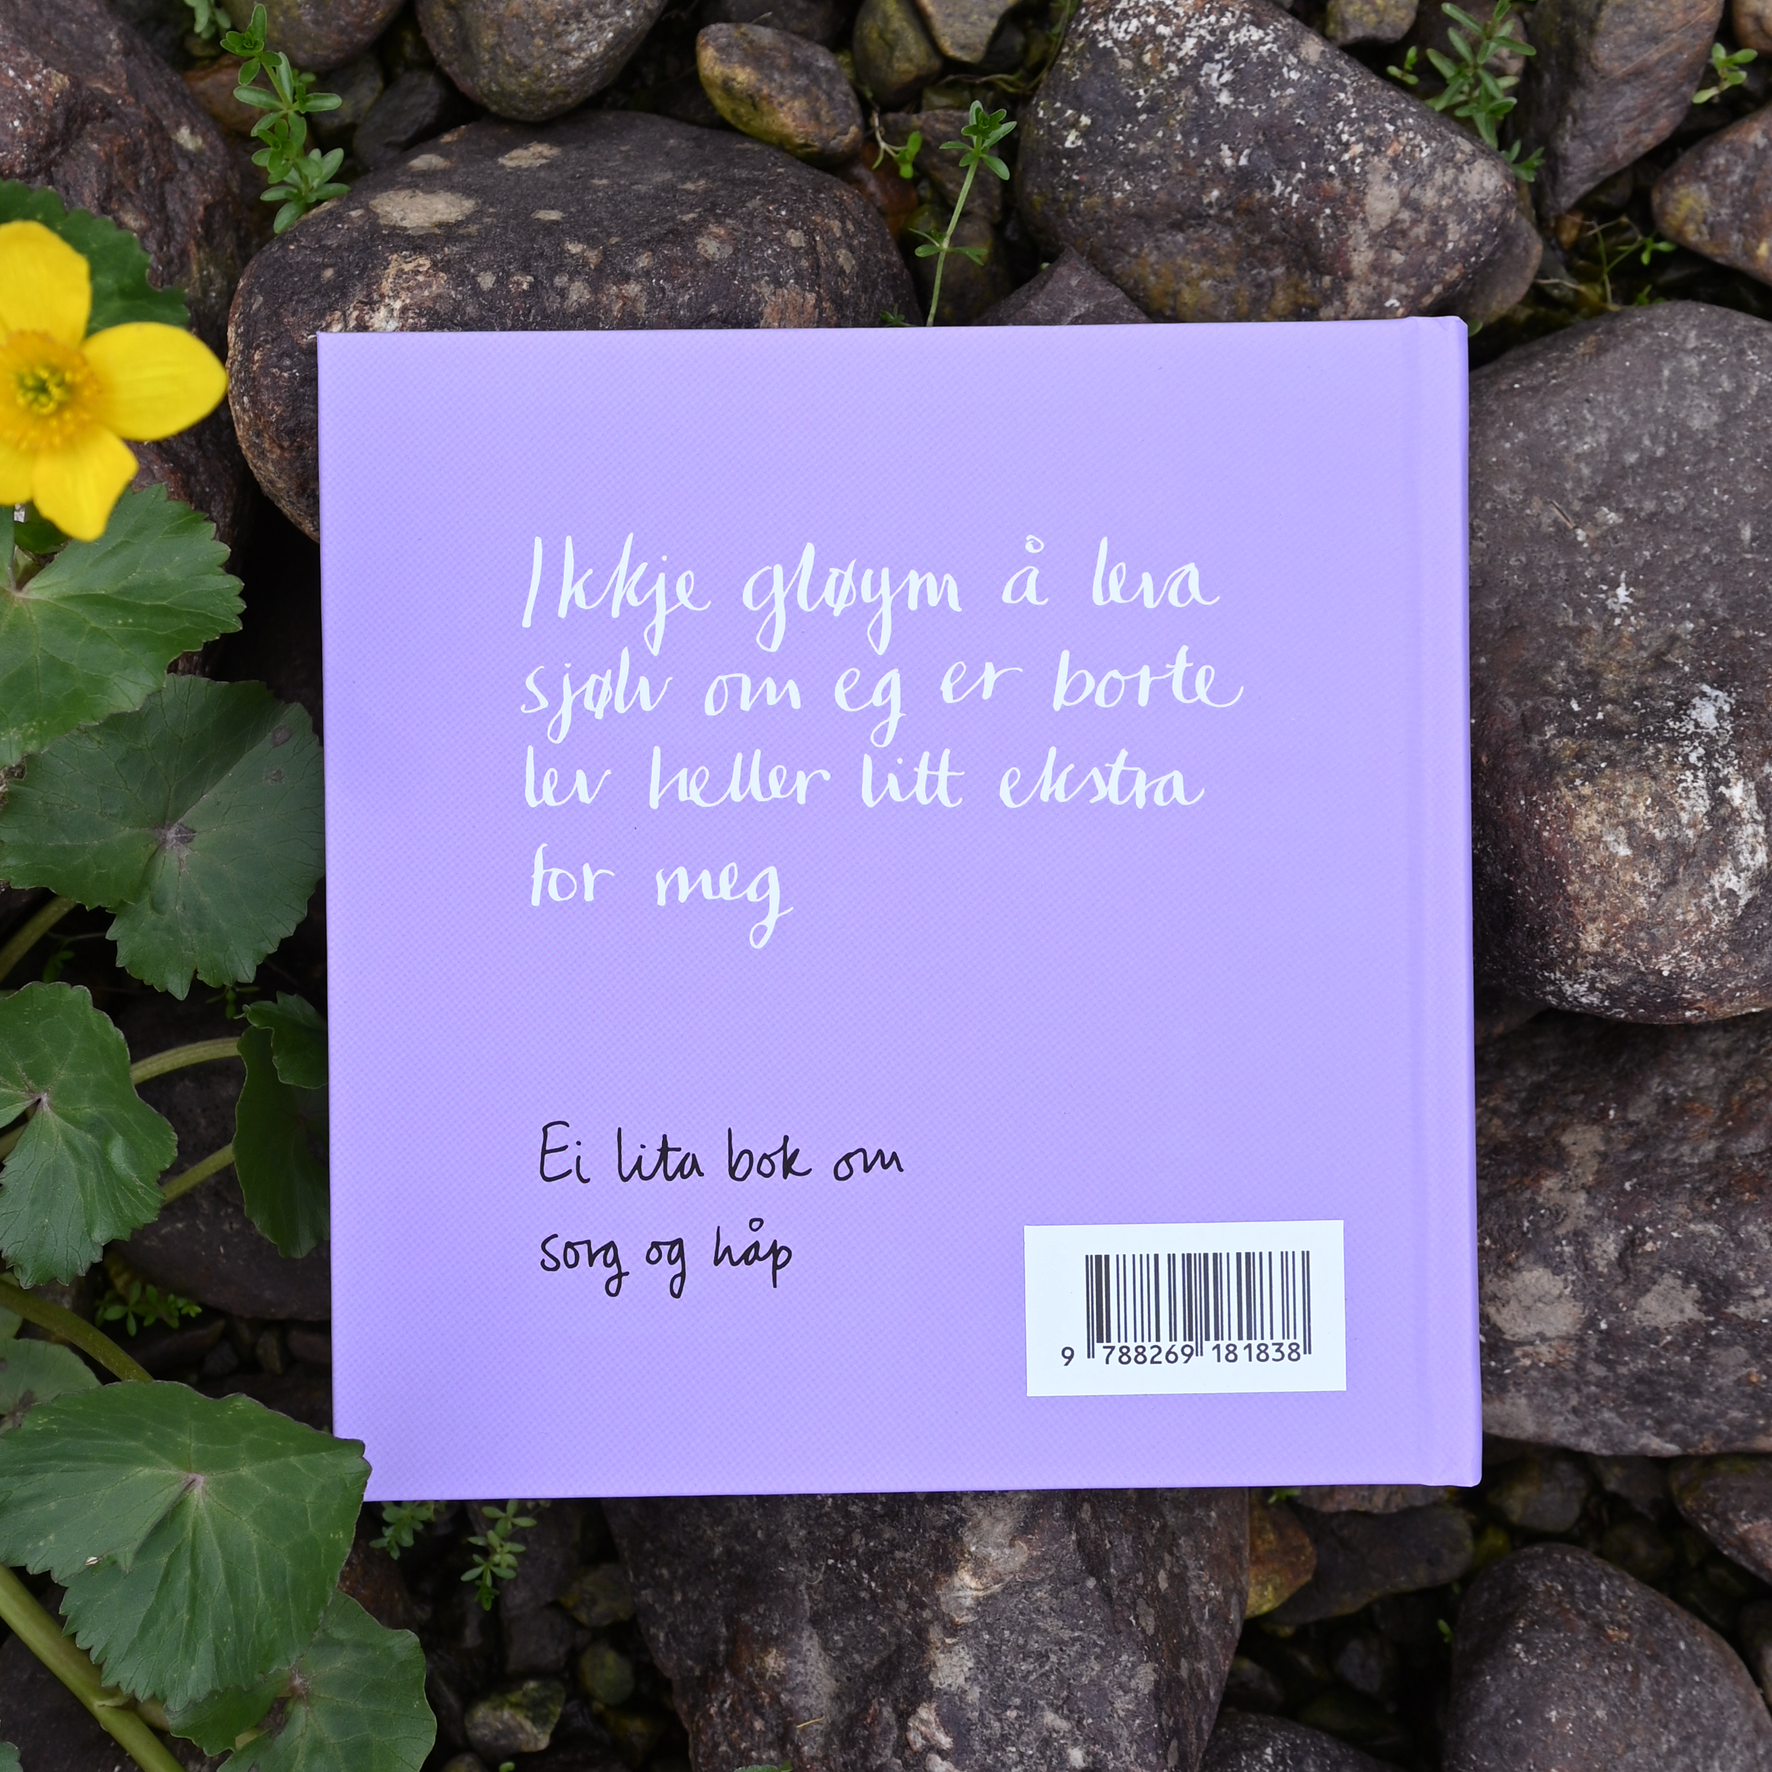 Ikkje gløym å leva
sjølv om eg er borte
lev heller litt ekstra
for meg
Ei lita bok om
sorg og håp
9 788269 181838